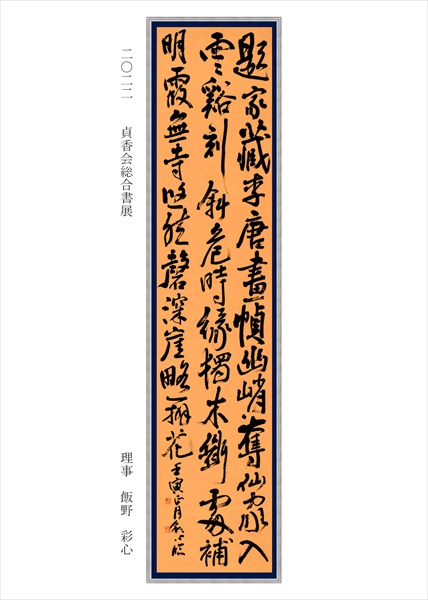 題家藏李唐畫幀幽峭奪仙家入
雲谿斜危時緣木斷處補
明霞無寺磬深崖略一花 壬寅正月彩心
二〇二二 貞香会総合書展
理事 飯野 彩心